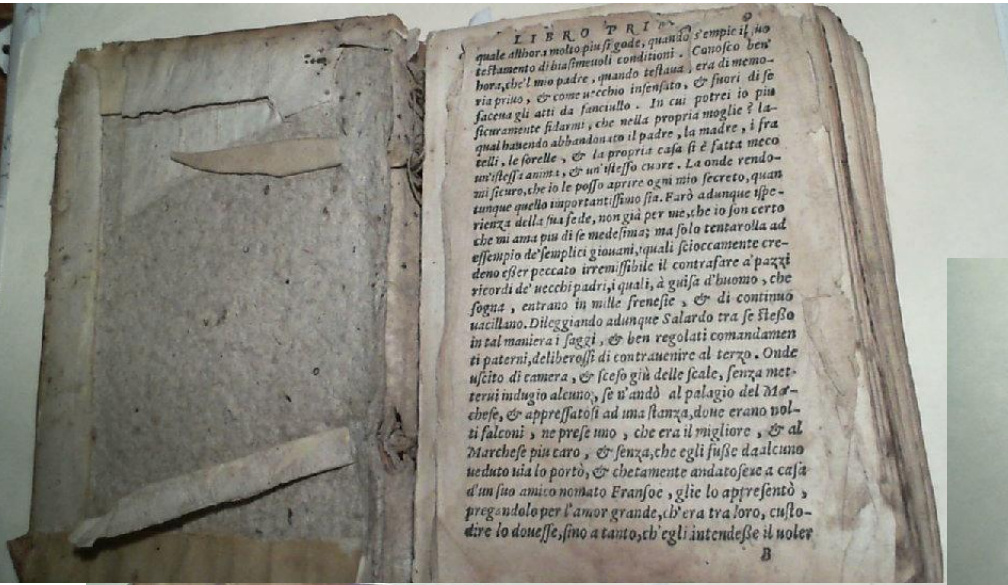 LIBRO PRI 9
quale allhora molto piu si gode, quando s'empie il suo
testamento di biasimeuoli conditioni. Conosco ben'
hora, che'l mio padre, quando testaua, era di memo-
ria priuo, & come uecchio insensato, & fuori di se
facena gli atti da fanciullo. In cui potrei io piu
sicuramente fidarmi, che nella propria moglie? la-
qual hauendo abbandonato il padre, la madre, i fra
telli, le sorelle, & la propria casa si è fatta meco
un'istessa anima, & un'istesso cuore. La onde rendo-
mi sicuro, che io le posso aprire ogni mio secreto, quan
tunque quello importantissimo sia. Farò adunque ispe-
rienza della sua fede, non già per me, che io son certo
che mi ama piu di se medesima; ma solo tentarolla ad
essempio de' semplici giouani, iquali scioccamente cre-
deno esser peccato irremissibile il contrafare a' pazzi
ricordi de' uecchi padri, i quali, à guisa d'huomo, che
sogna, entrano in mille frenesie, & di continuo
uacillano. Dileggiando adunque Salardo tra se stesso
in tal maniera i saggi, & ben regolati comandamen
ti paterni, deliberossi di contrauenire al terzo. Onde
uscito di camera, & sceso giù delle scale, senza met-
terui indugio alcuno, se n'andò al palagio del Mar-
chese, & appressatosi ad una stanza, doue erano mol-
ti falconi, ne prese uno, che era il migliore, & al
Marchese piu caro, & senza, che egli fusse da alcuno
ueduto uia lo portò, & chetamente andatosene a casa
d'un suo amico nomato Fransoe, glie lo appresentò,
pregandolo per l'amor grande, ch'era tra loro, custo-
dire lo douesse, sino a tanto, ch'egli intendesse il uoler
B